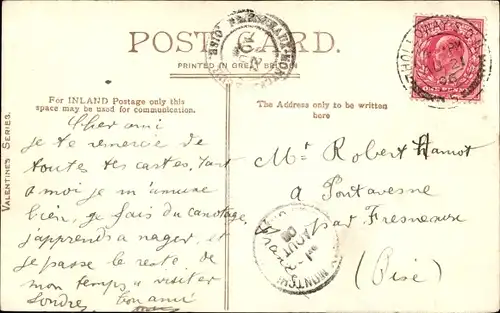 POST CARD.
PRINTED IN GREAT BRITAIN
For INLAND Postage only this
space may be used for communication.
The Address only to be written
here
VALENTINES SERIES.
Cher ami
je te remercie de
toutes tes cartes. Tant
a moi je m'amuse
bien, je fais du canotage,
j'apprends a nager, et
je passe le reste de
mon temps a visiter
Londres. ton ami
Mr Robert
a Pontavesne
par Fresneaux
(Oise)
ONE PENNY
HOLLOWAY
AOUT
06
MONTCH